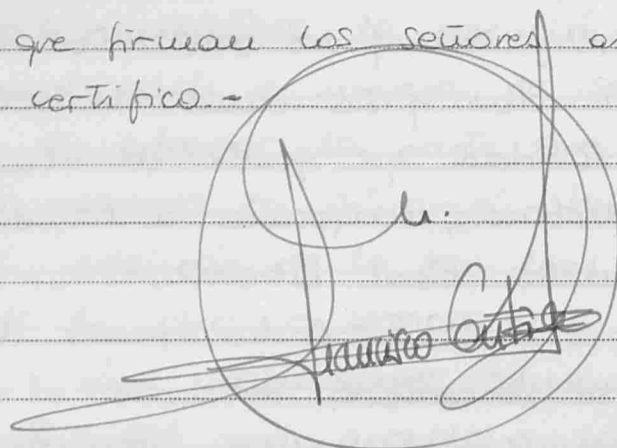 que firman los señores
certifico.-
Francisco